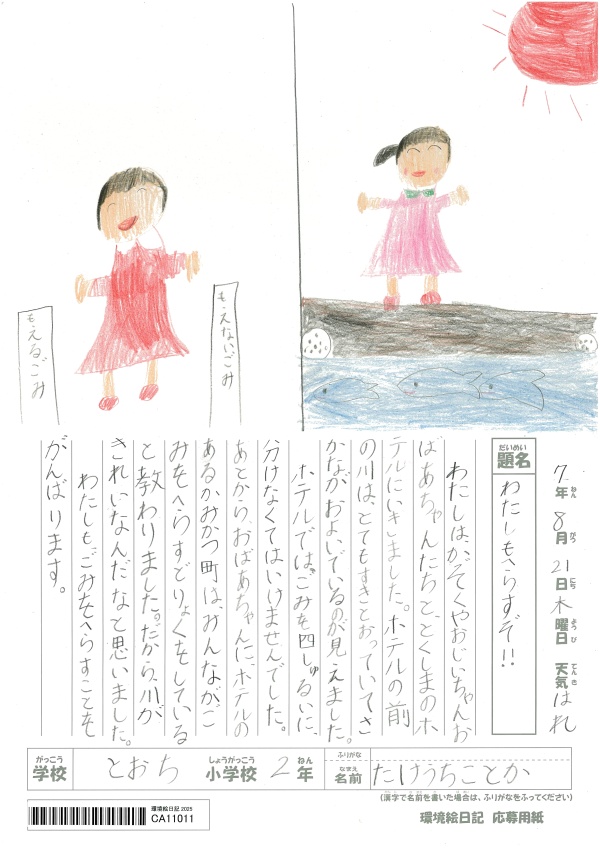 もえるごみ
もえないごみ
7年 8月 21日 木曜日 天気 はれ
ねん がつ にち ようび てんき
だいめい
題名
わたしもへらすぞ!!
わたしは、かぞくやおじいちゃんお
ばあちゃんたちと、とくしまのホ
テルにいきました。ホテルの前
の川は、とてもすきとおっていてさ
かながおよいでいるのが見えました。
ホテルでは、ごみを四しゅるいに、
分けなくてはいけませんでした。
あとから、おばあちゃんに、ホテルの
あるかみかつ町は、みんながご
みをへらすどりょくをしている
と教わりました。だから、川が
きれいなんだなと思いました。
わたしも、ごみをへらすことを
がんばります。
がっこう
学校
とおち
しょうがっこう
小学校
2
ねん
年
ふりがな
なまえ
名前
たけうちことか
(漢字で名前を書いた場合は、ふりがなをふってください)
環境絵日記 応募用紙
環境絵日記 2025
CA11011